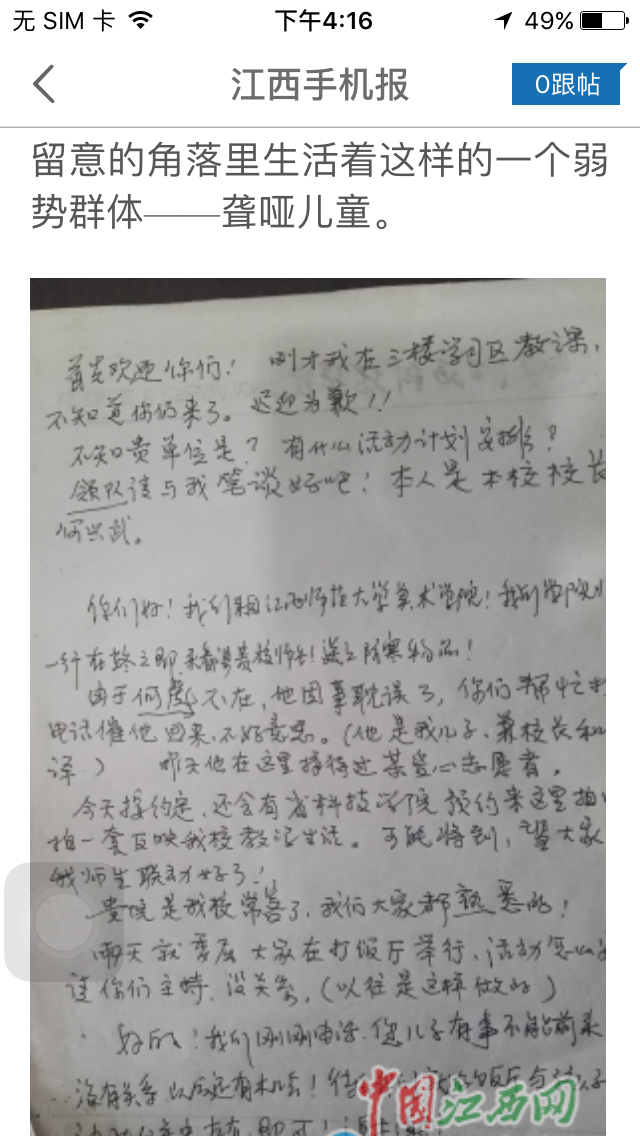 无 SIM 卡
下午4:16
49%
江西手机报
0跟帖
留意的角落里生活着这样的一个弱
势群体——聋哑儿童。
首先欢迎你们！ 刚才我在三楼学习区教课，
不知道你们来了。迟迎为歉！！
不知贵单位是？有什么活动计划安排？
领队请与我笔谈好吧！本人是本校校长
何兴武。
你们好！我们来自江西师范大学美术学院！我们学院
一行在 之即，来看望贵校师生！送上防寒物品！
由于何彪不在，他因事耽误了，你们帮忙打
电话催他回来，不好意思。（他是我儿子、兼校长和
译） 昨天他在这里接待过某爱心志愿者。
今天按约定，还会有省科技学院预约来这里拍
拍一套反映我校教活生活。可能将到，请大家
我师生联动好了！
贵院是我校常客了，我们大家都熟悉的！
雨天就委屈大家在打饭厅举行，活动怎么
请你们主持，没关系，（以往是这样做的）
好的！我们刚刚电话，您儿子有事不能前来
没有关系，以后还有机会！
中国江西网